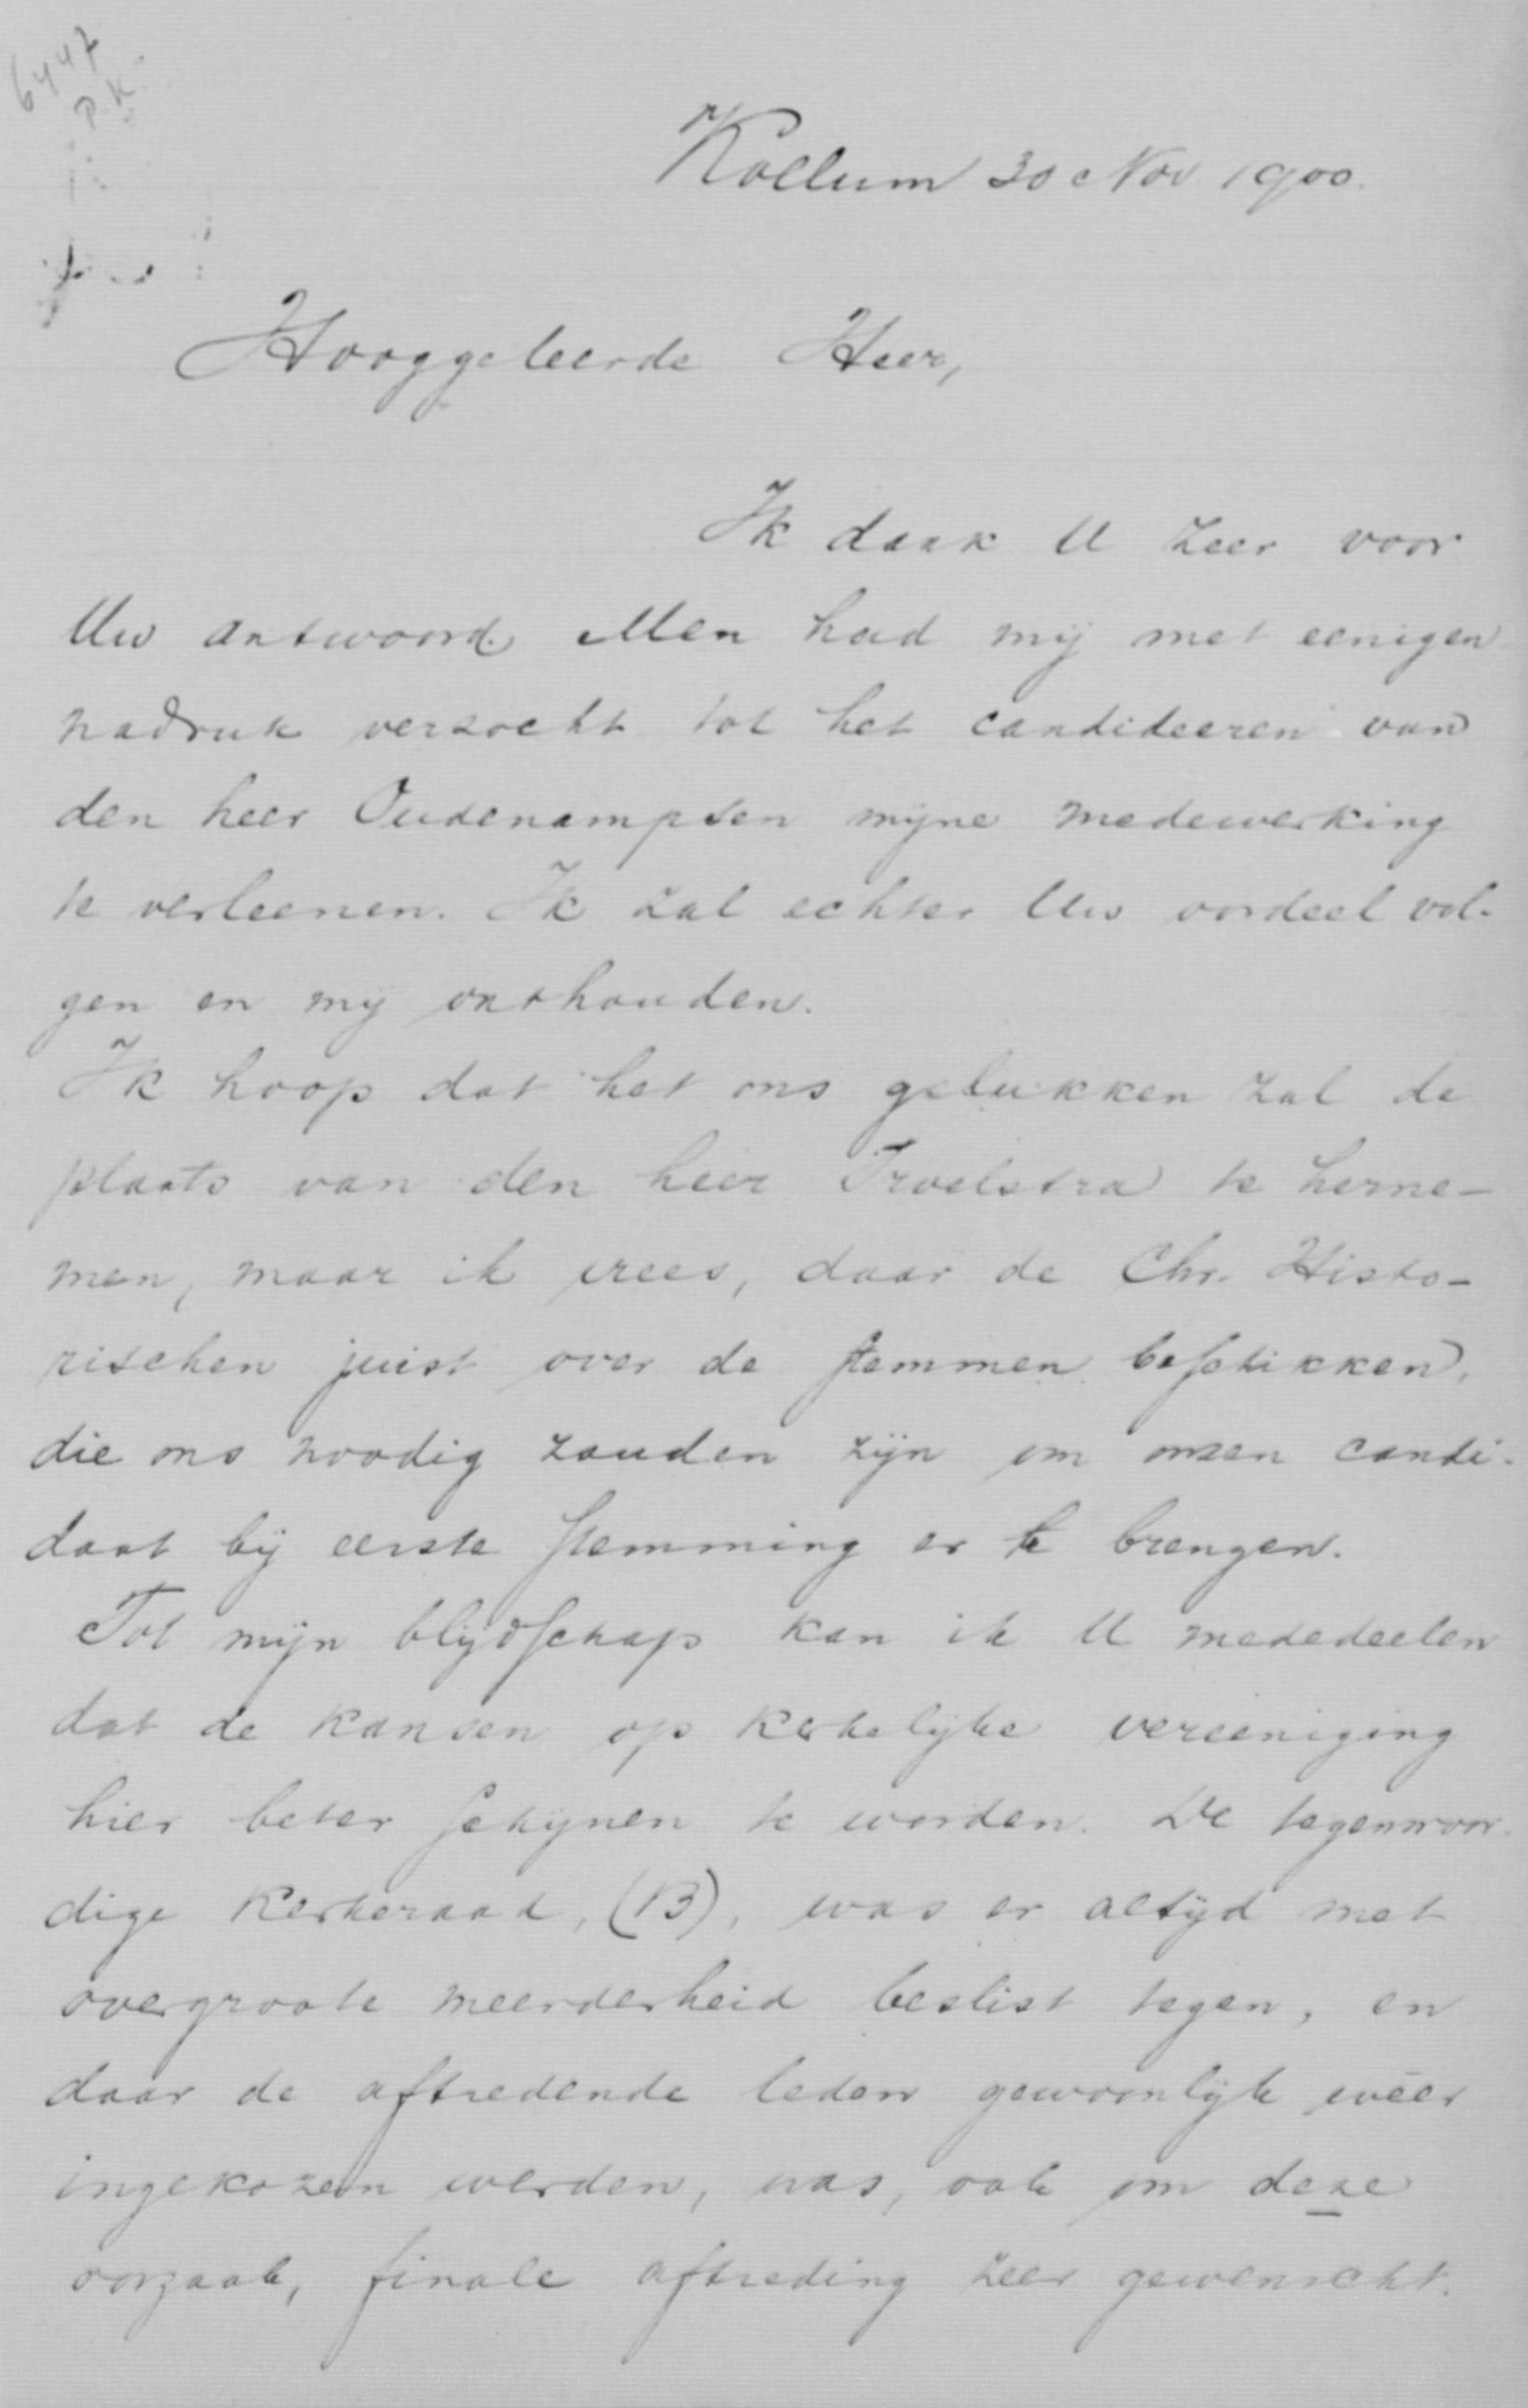 6447
P.K.
Kollum 30 Nov 1900.
Hooggeleerde Heer,
Ik dank U zeer voor
Uw antwoord. Men had mij met eenigen
nadruk verzocht tot het candideeren van
den heer Oudenampsen mijne medewerking
te verleenen. Ik zal echter Uw oordeel vol-
gen en mij onthouden.
Ik hoop dat het ons gelukken zal de
plaats van den heer Troelstra te herne-
men, maar ik vrees, daar de Chr. Histo-
rischen juist over de stemmen beschikken,
die ons noodig zouden zijn om onzen candi-
daat bij eerste stemming er te brengen.
Tot mijn blijdschap kan ik U mededeelen
dat de kansen op kerkelijke vereeniging
hier beter schijnen te worden. De tegenwoor-
dige Kerkeraad, (B), was er altijd met
overgroote meerderheid beslist tegen, en
daar de aftredende leden gewoonlijk weer
ingekozen werden, was, ook om deze
oorzaak, finale aftreding zeer gewenscht.